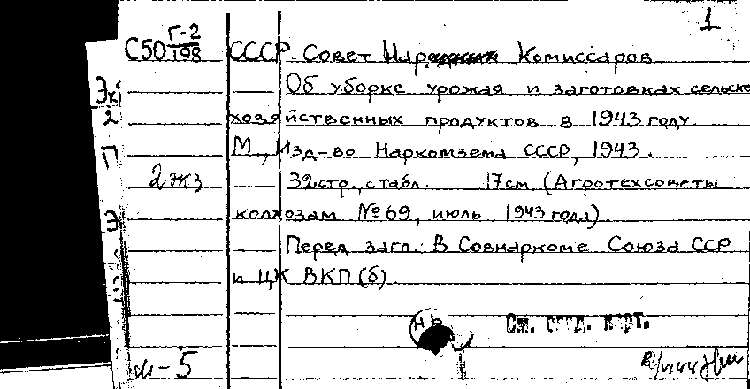 1
С50 Г-2/198 СССР. Совет Народных Комиссаров
Об уборке урожая и заготовках сельско
хозяйственных продуктов в 1943 году.
М., Изд-во Наркомзема СССР, 1943.
2жз 32стр., стабл. 17см. (Агротехсоветы
колхозам №69, июль 1943 года)
Перед загл.: В Совнаркоме Союза ССР
и ЦК ВКП(б).
См. след. карт.